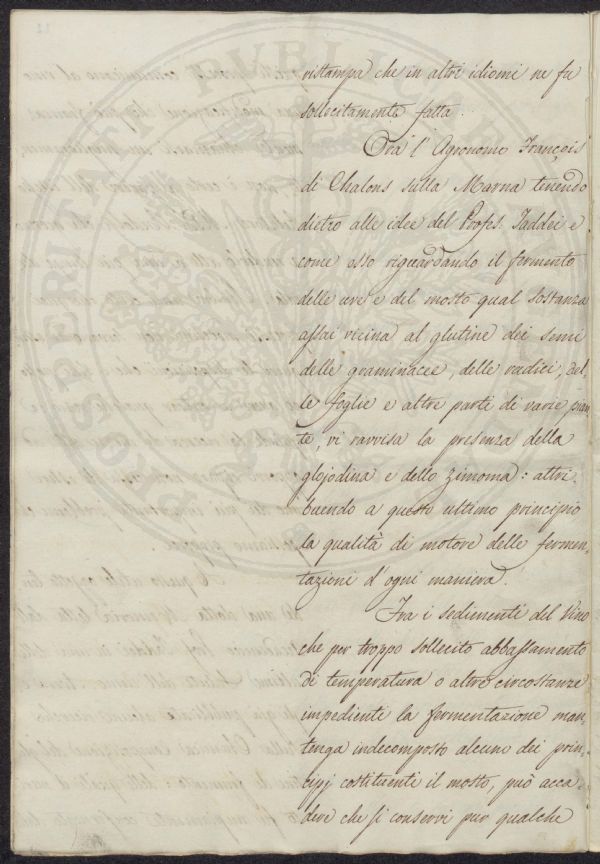 ristampa che in altri idiomi ne fu
sollecitamente fatta.
Ora l'Agronomo François
di Chalons sulla Marna tenendo
dietro alle idee del Profes. Taddei e
come esso riguardando il fermento
delle uve e del mosto qual sostanza
assai vicina al glutine dei semi
delle graminacee, delle radici, del-
le foglie e altre parti di varie pian
te, vi ravvisa la presenza della
glojodina e dello zimoma: attri-
buendo a questo ultimo principio
la qualità di motore delle fermen-
tazioni d'ogni maniera.
Fra i sedimenti del Vino
che per troppo sollecito abbassamento
di temperatura o altre circostanze
impedienti la fermentazione man-
tenga indecomposto alcuno dei prin-
cipj costituenti il mosto, può acca-
dere che si conservi pur qualche
PROSPERITATI PUBLICAE